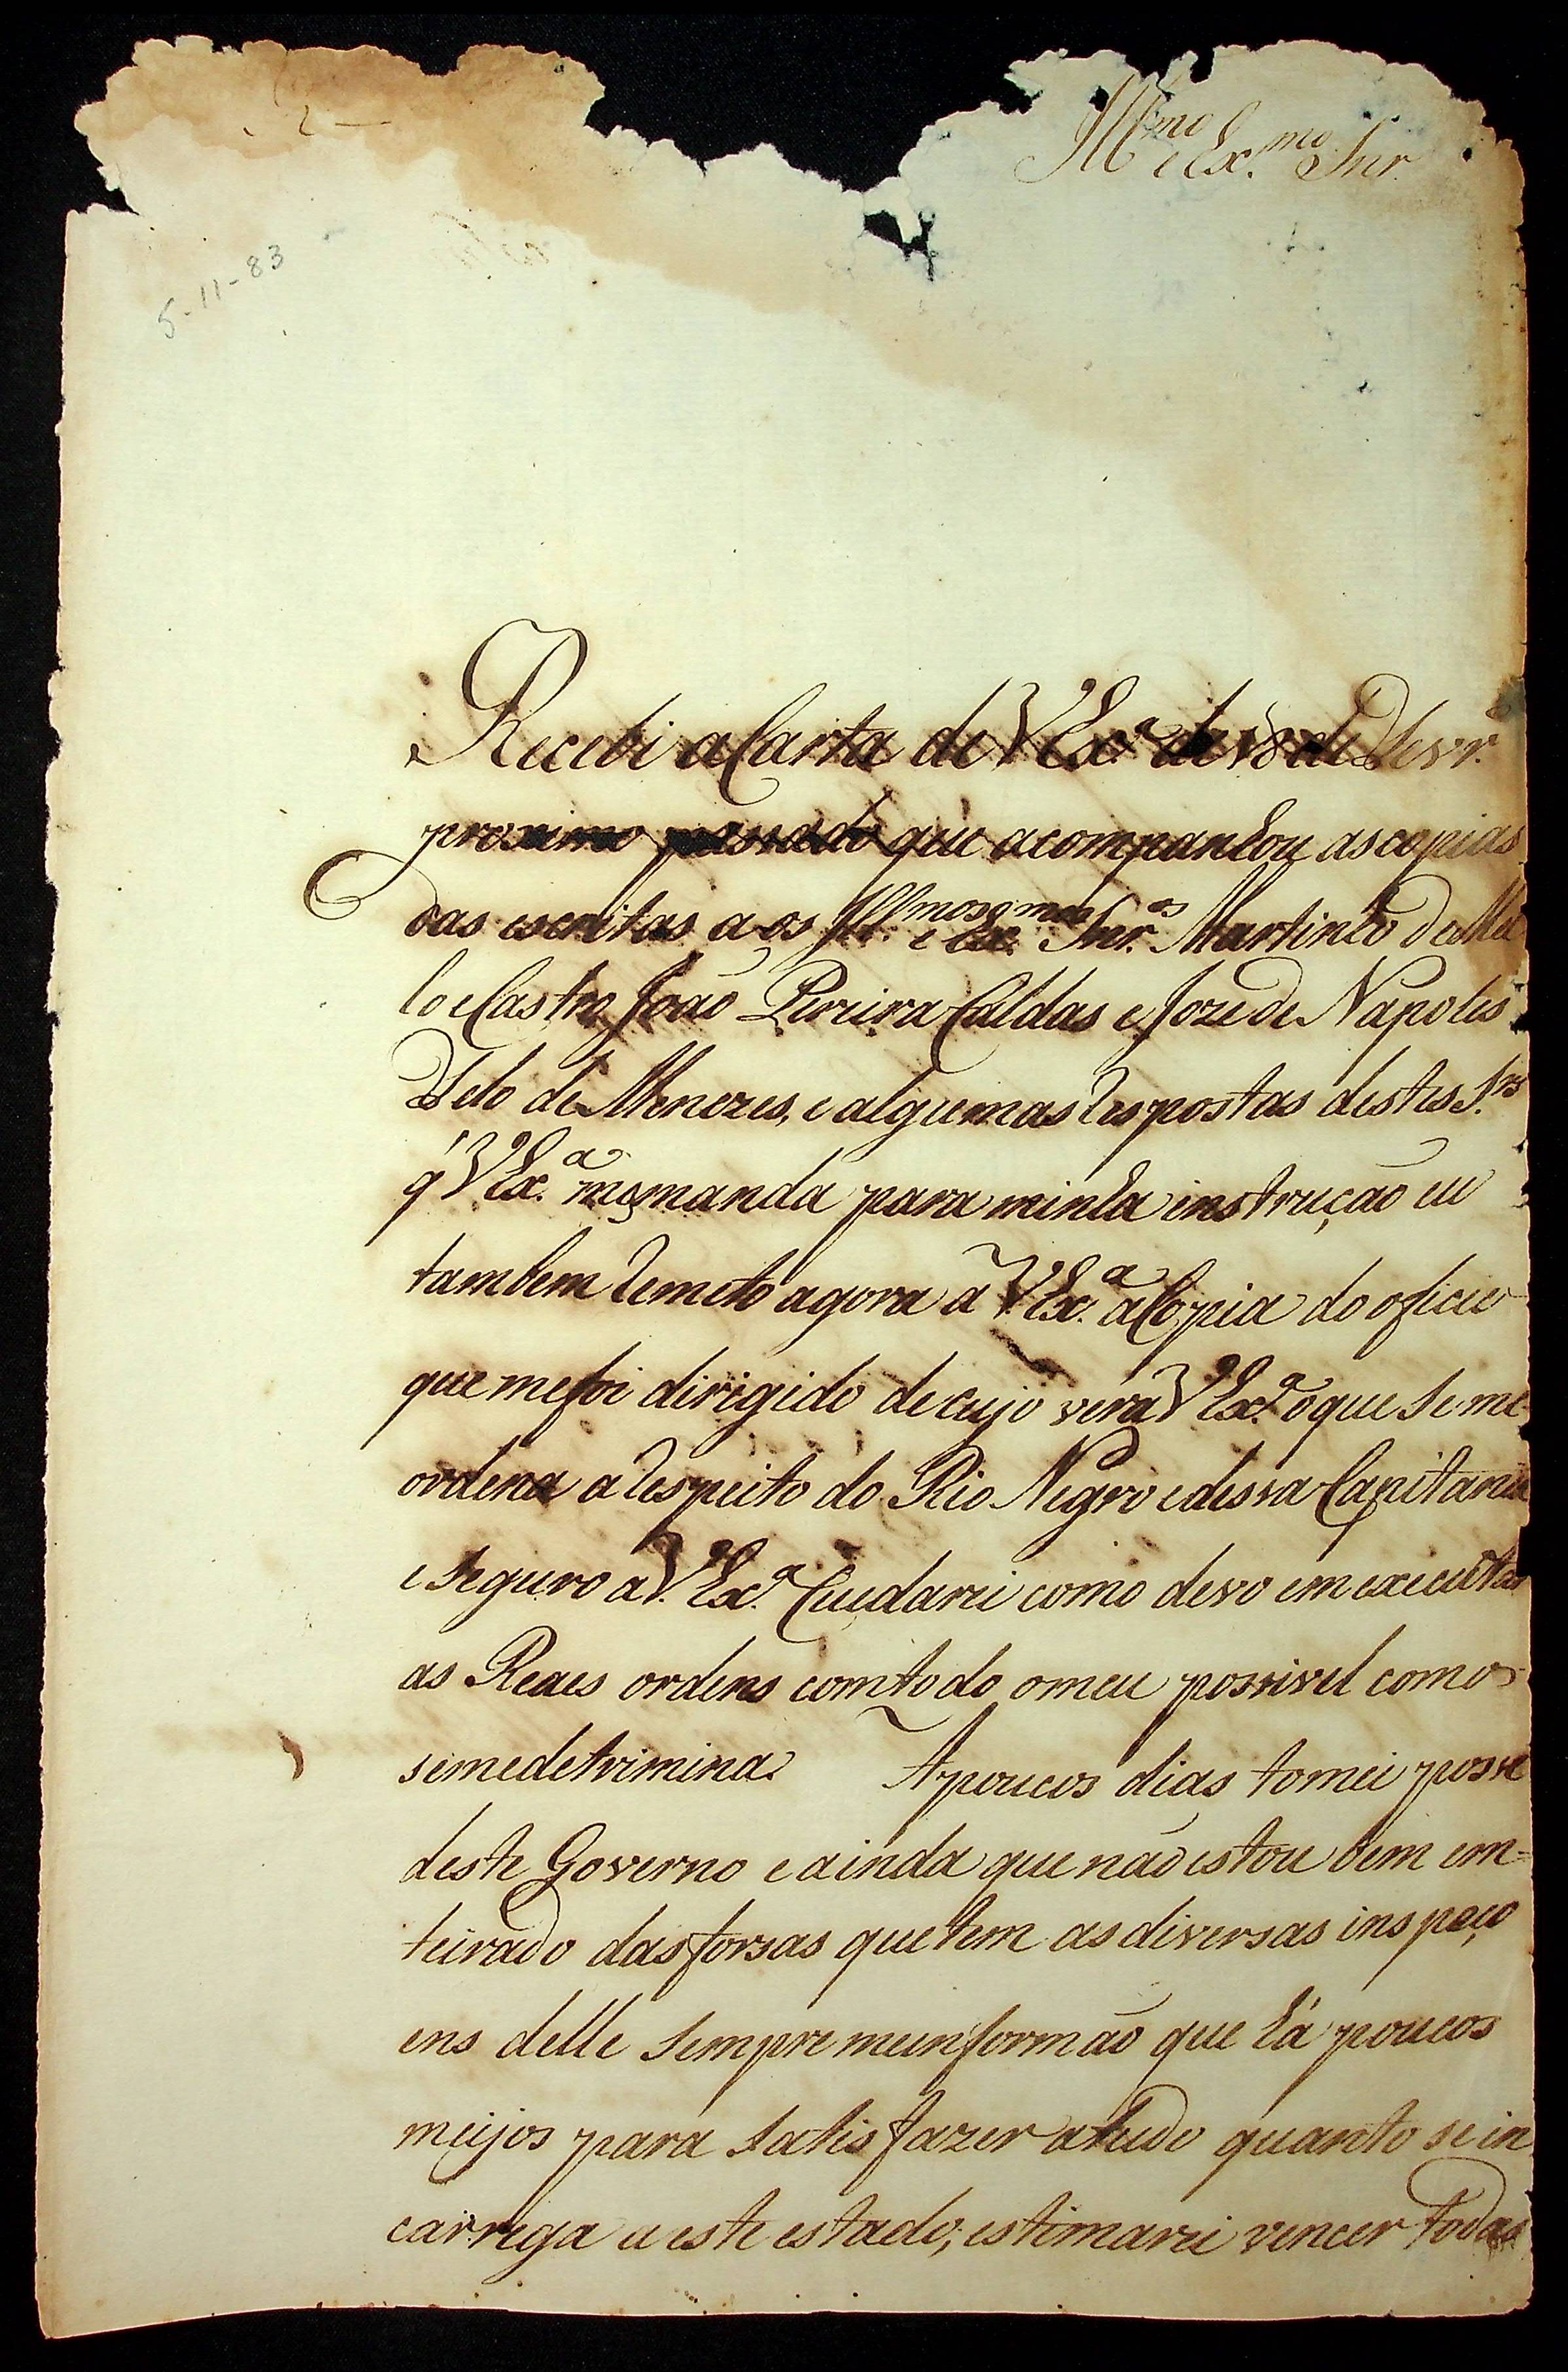 Ill.mo e Ex.mo Snr.
5-11-83
Recebi a Carta de V Ex.a de 18 de Fevr.o
proximo passado que acompanhou as copias
das escritas a os Ill.mos e Ex.mos Snr.es Martinho de Me
lo e Castro João Pereira Caldas e Joze de Napoles
Telo de Menezes, e algumas respostas destes S.res
q' V Ex.a me manda para minha instrução eu
tambem remeto agora a V. Ex.a a Copia do oficio
que me foi dirigido de cujo verá V Ex.a o que se me
ordena a respeito do Rio Negro e dessa Capitania
e seguro a V. Ex.a Cuidarei como devo em executar
as Reaes ordens com todo o meu possivel como
se me detrimina. A poucos dias tomei posse
deste Governo e ainda que não estou bem em=
teirado das forsas que tem as diversas inspeço
ens delle sempre me informão que há poucos
meijos para satisfazer a tudo quanto se in
carrega a este estado; estimarei vencer todas